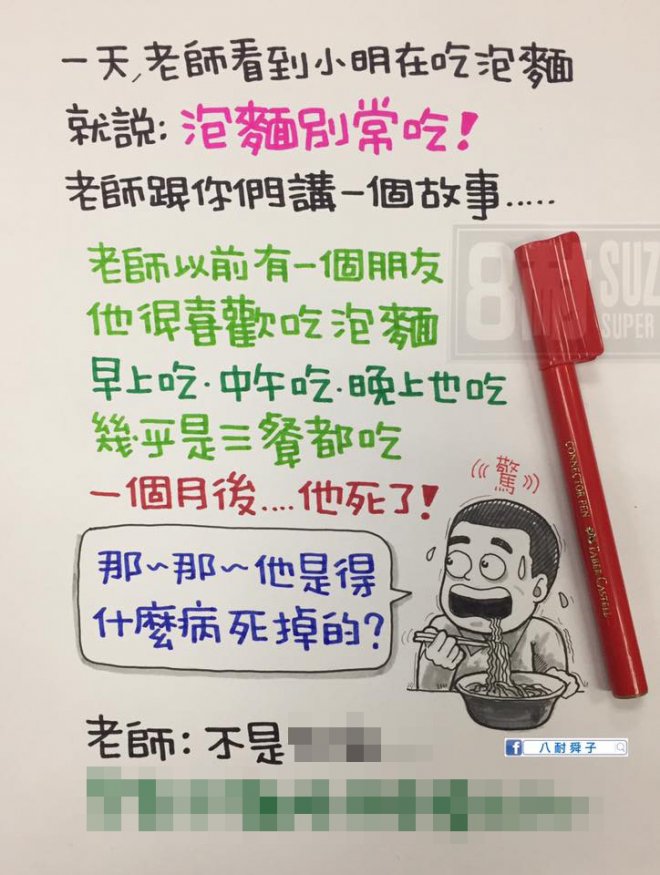 一天,老師看到小明在吃泡麵
就說:泡麵別常吃!
老師跟你們講一個故事.....
老師以前有一個朋友
他很喜歡吃泡麵
早上吃·中午吃·晚上也吃
幾乎是三餐都吃
一個月後....他死了!
驚
那~那~他是得
什麼病死掉的?
老師:不是
8耐 SUZ
SUPER
CONNECTOR PEN FABER CASTELL
八耐舜子